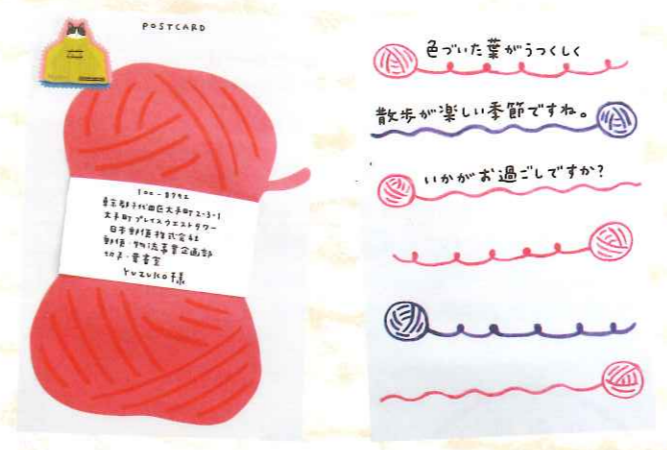 POSTCARD
100-8792
東京都千代田区大手町2-3-1
大手町プレイスウエストタワー
日本郵便株式会社
郵便・物流事業企画部
切手・葉書室
yuzuko様
色づいた葉がうつくしく
散歩が楽しい季節ですね。
いかがお過ごしですか?